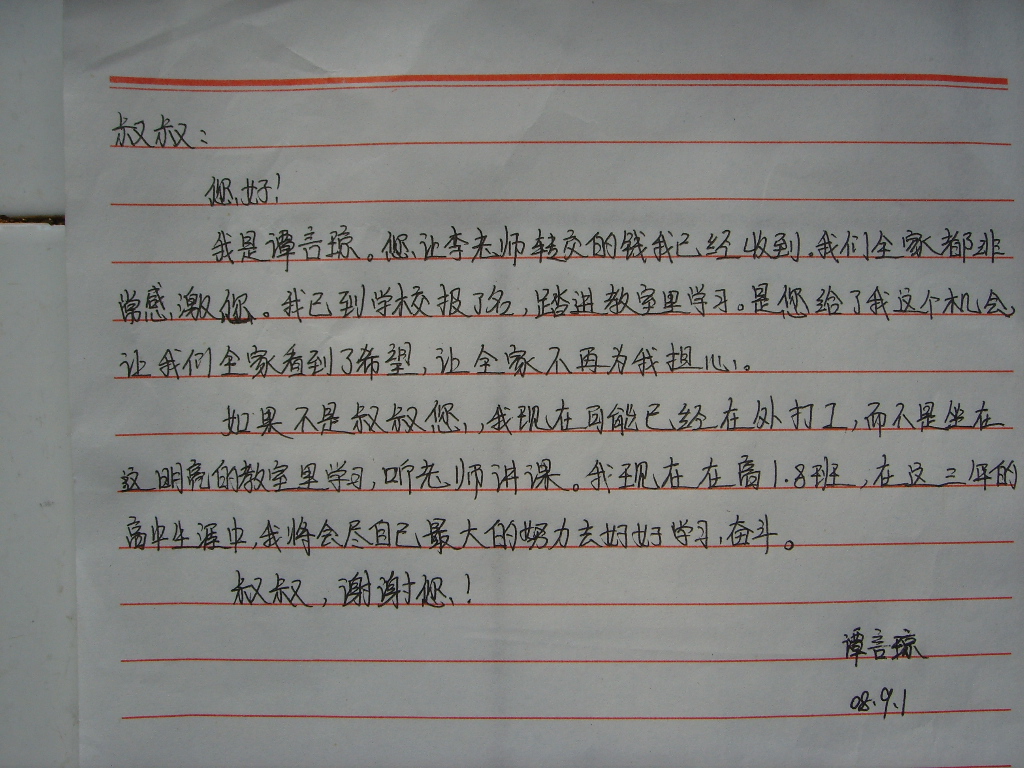 叔叔：
您好！
我是谭言琼。您让李老师转交的钱我已经收到.我们全家都非
常感激您。我已到学校报了名，踏进教室里学习。是您给了我这个机会，
让我们全家看到了希望，让全家不再为我担心。
如果不是叔叔您，我现在可能已经在外打工，而不是坐在
这明亮的教室里学习，听老师讲课。我现在在高1.8班，在这三年的
高中生涯中，我将会尽自己最大的努力去好好学习，奋斗。
叔叔，谢谢您！
谭言琼
08.9.1